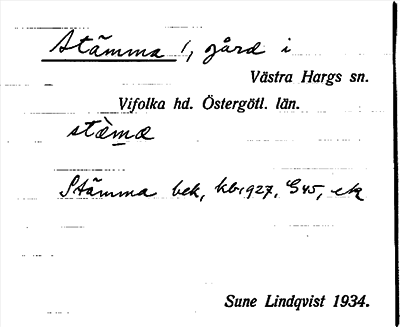 Stämma 1, gård i
Västra Hargs sn.
Vifolka hd. Östergötl. län.
stèmæ
Stämma bek, kb1927, G45, ek
Sune Lindqvist 1934.